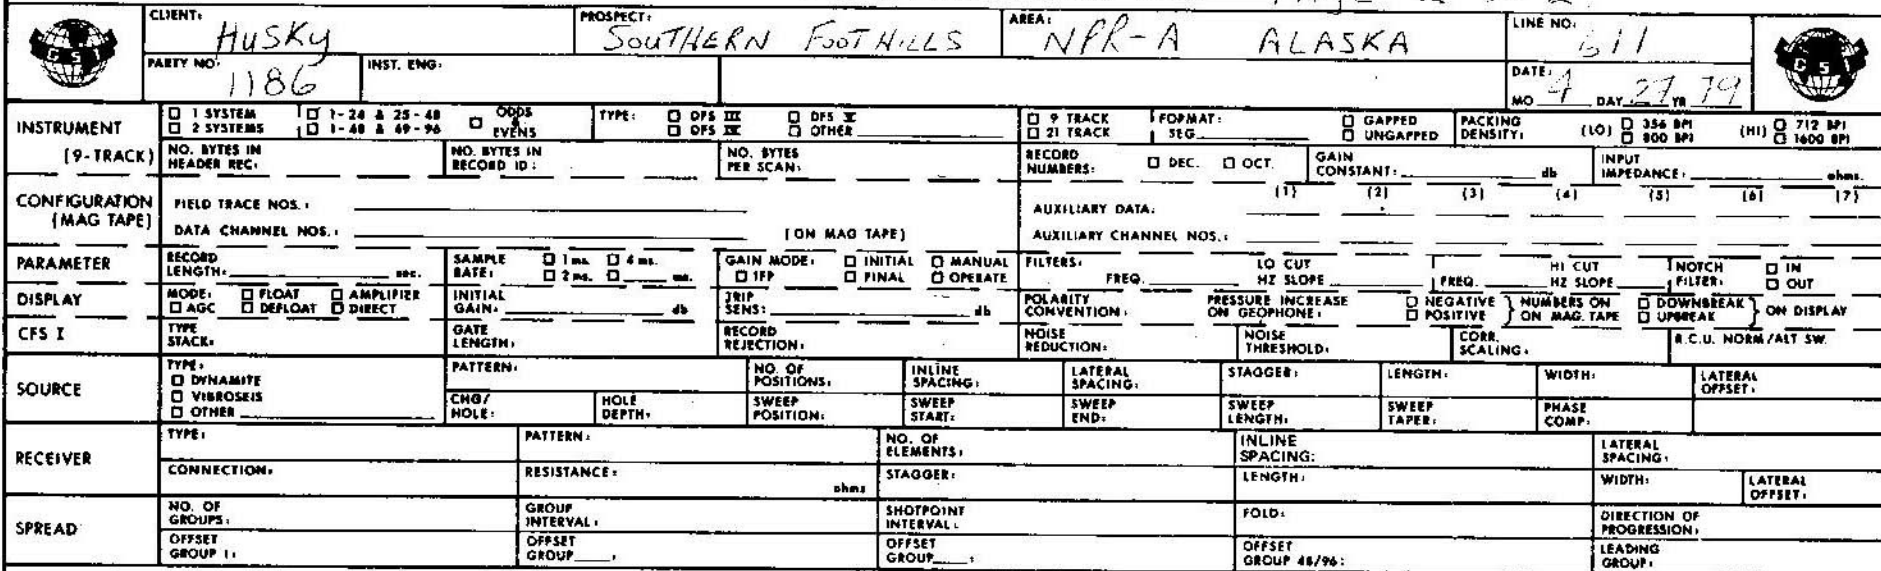 CLIENT: HUSKY PROSPECT: SOUTHERN FOOTHILLS AREA: NPR-A ALASKA LINE NO: 611
GSI GSI
PARTY NO: 1186 INST. ENG: DATE: MO 4 DAY 27 YR 79
INSTRUMENT (9-TRACK) □ 1 SYSTEM □ 1-24 & 25-48 □ ODDS & EVENS TYPE: □ DFS III □ DFS V □ 9 TRACK FORMAT: □ GAPPED PACKING DENSITY: (LO) □ 356 BPI (HI) □ 712 BPI
□ 2 SYSTEMS □ 1-48 & 49-96 □ DFS IV □ OTHER □ 21 TRACK SEG □ UNGAPPED □ 800 BPI □ 1600 BPI
NO. BYTES IN HEADER REC: NO. BYTES IN RECORD ID: NO. BYTES PER SCAN: RECORD NUMBERS: □ DEC. □ OCT. GAIN CONSTANT: db INPUT IMPEDANCE: ohms.
CONFIGURATION (MAG TAPE) FIELD TRACE NOS.: AUXILIARY DATA: (1) (2) (3) (4) (5) (6) (7)
DATA CHANNEL NOS.: (ON MAG TAPE) AUXILIARY CHANNEL NOS.:
PARAMETER RECORD LENGTH: sec. SAMPLE RATE: □ 1 ms. □ 4 ms. □ 2 ms. □ ms. GAIN MODE: □ INITIAL □ MANUAL □ IFP □ FINAL □ OPERATE FILTERS: FREQ. LO CUT HZ SLOPE FREQ. HI CUT HZ SLOPE NOTCH FILTER: □ IN □ OUT
DISPLAY MODE: □ FLOAT □ AMPLIFIER □ AGC □ DEFLOAT □ DIRECT INITIAL GAIN: db TRIP SENS: db POLARITY CONVENTION: PRESSURE INCREASE ON GEOPHONE: □ NEGATIVE □ POSITIVE } NUMBERS ON ON MAG. TAPE □ DOWNBREAK □ UPBREAK } ON DISPLAY
CFS I TYPE STACK: GATE LENGTH: RECORD REJECTION: NOISE REDUCTION: NOISE THRESHOLD: CORR. SCALING: R.C.U. NORM/ALT SW.
SOURCE TYPE: □ DYNAMITE □ VIBROSEIS □ OTHER PATTERN: NO. OF POSITIONS: INLINE SPACING: LATERAL SPACING: STAGGER: LENGTH: WIDTH: LATERAL OFFSET:
CHG/HOLE: HOLE DEPTH: SWEEP POSITION: SWEEP START: SWEEP END: SWEEP LENGTH: SWEEP TAPER: PHASE COMP:
RECEIVER TYPE: PATTERN: NO. OF ELEMENTS: INLINE SPACING: LATERAL SPACING:
CONNECTION: RESISTANCE: ohms STAGGER: LENGTH: WIDTH: LATERAL OFFSET:
SPREAD NO. OF GROUPS: GROUP INTERVAL: SHOTPOINT INTERVAL: FOLD: DIRECTION OF PROGRESSION:
OFFSET GROUP 1: OFFSET GROUP : OFFSET GROUP : OFFSET GROUP 48/96: LEADING GROUP: